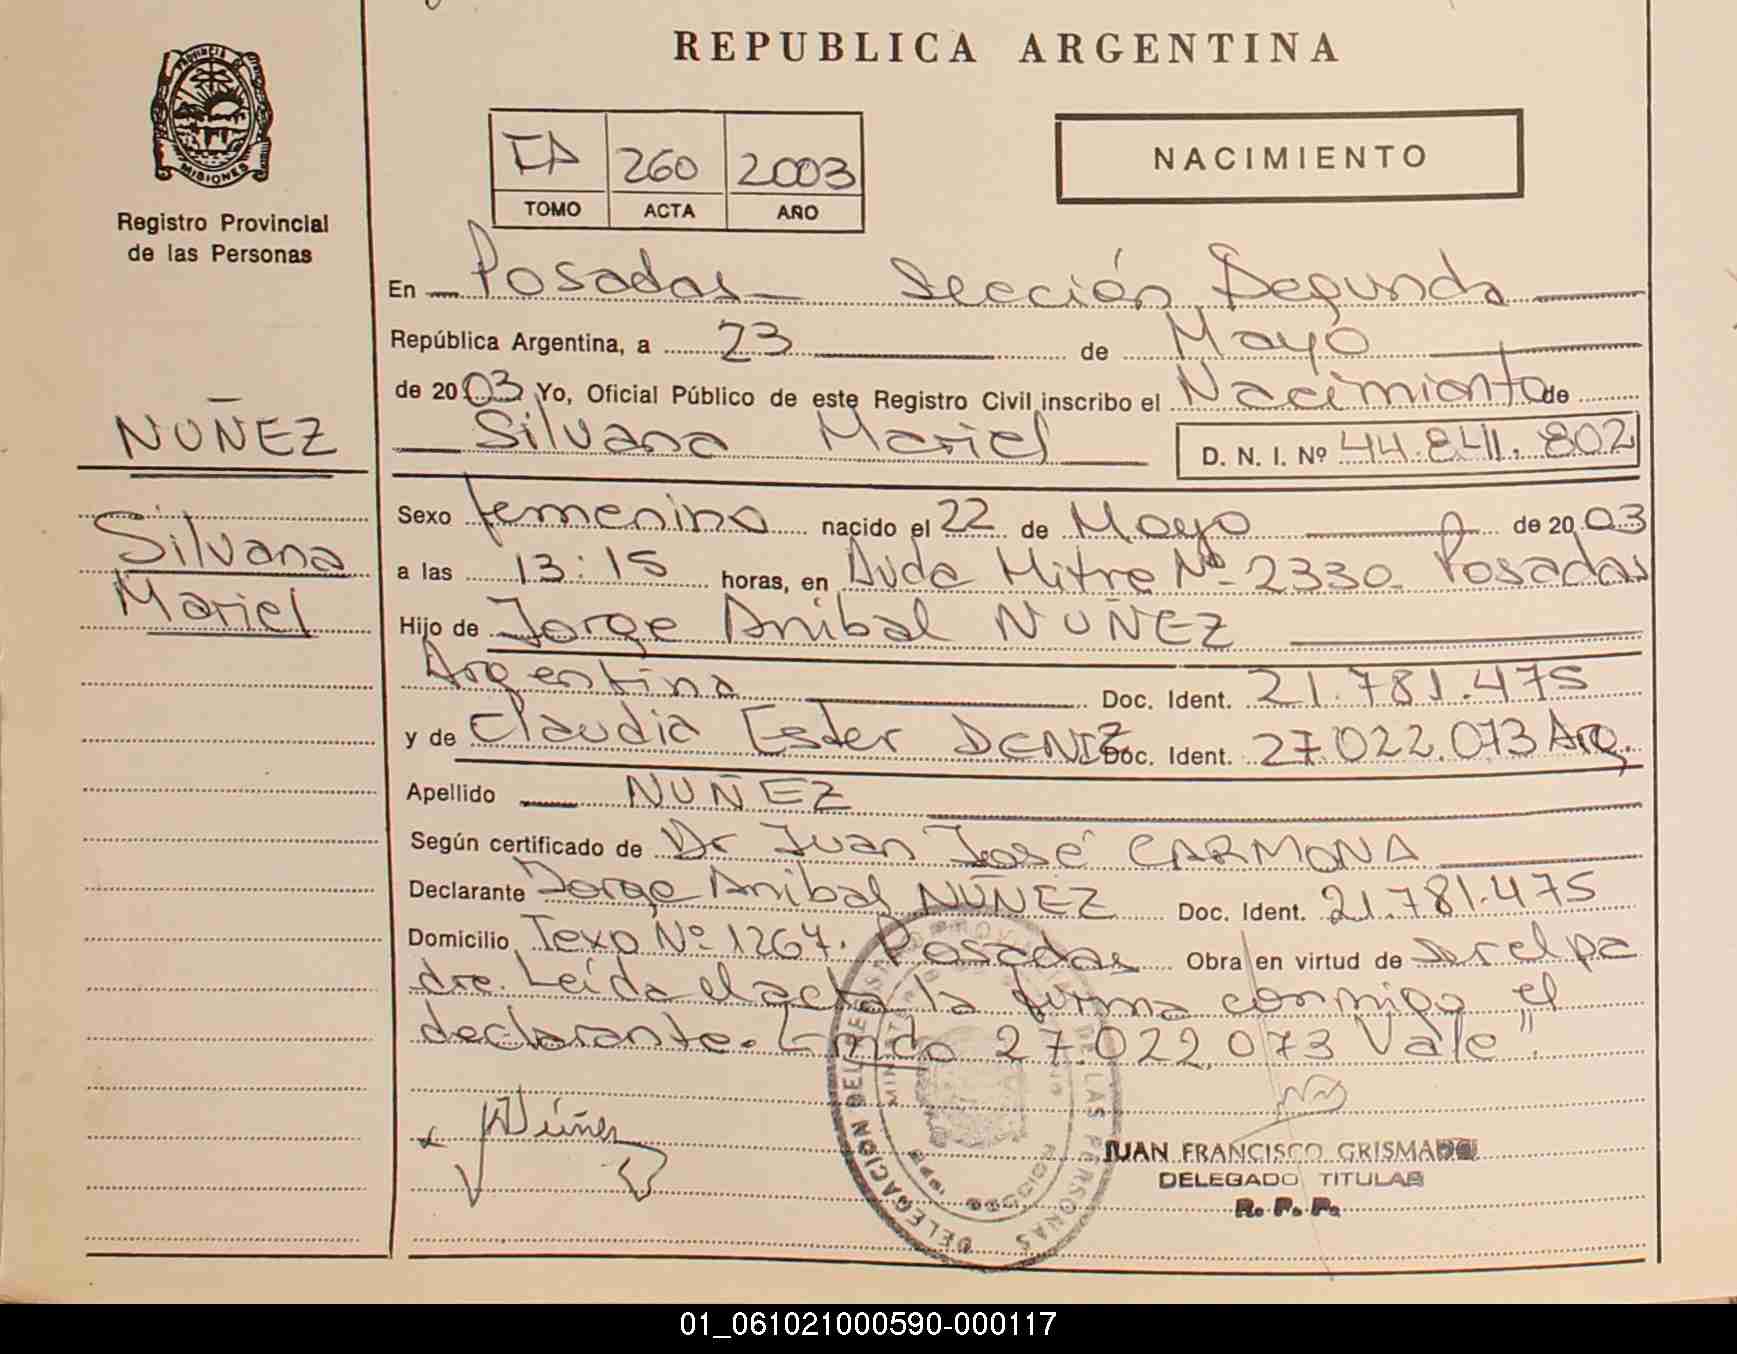 REPUBLICA ARGENTINA
PROVINCIA DE MISIONES
Registro Provincial
de las Personas
260 2003
TOMO ACTA AÑO
NACIMIENTO
En Posadas Sección Segunda
República Argentina, a 23 de Mayo
de 2003 Yo, Oficial Público de este Registro Civil inscribo el Nacimiento de
Silvana Mariel D. N. I. Nº 44.841.802
NUÑEZ
Silvana
Mariel
Sexo femenino nacido el 22 de Mayo de 2003
a las 13:15 horas, en Avda Mitre Nº 2330 Posadas
Hijo de Jorge Anibal NUÑEZ
Argentina Doc. Ident. 21.781.475
y de Claudia Ester DENIZ Doc. Ident. 27.022.073 Arg.
Apellido NUÑEZ
Según certificado de Dr Juan José CARMONA
Declarante Jorge Anibal NUÑEZ Doc. Ident. 21.781.475
Domicilio Texo Nº 1267. Posadas Obra en virtud de ser el pa
dre. Leída el acta la firma conmigo el
declarante. Emdo 27.022.073 Vale".
Núñez
DELEGACION DEL REGISTRO PROVINCIAL DE LAS PERSONAS
JUAN FRANCISCO GRISMADO
DELEGADO TITULAR
R. P. P.
01_061021000590-000117